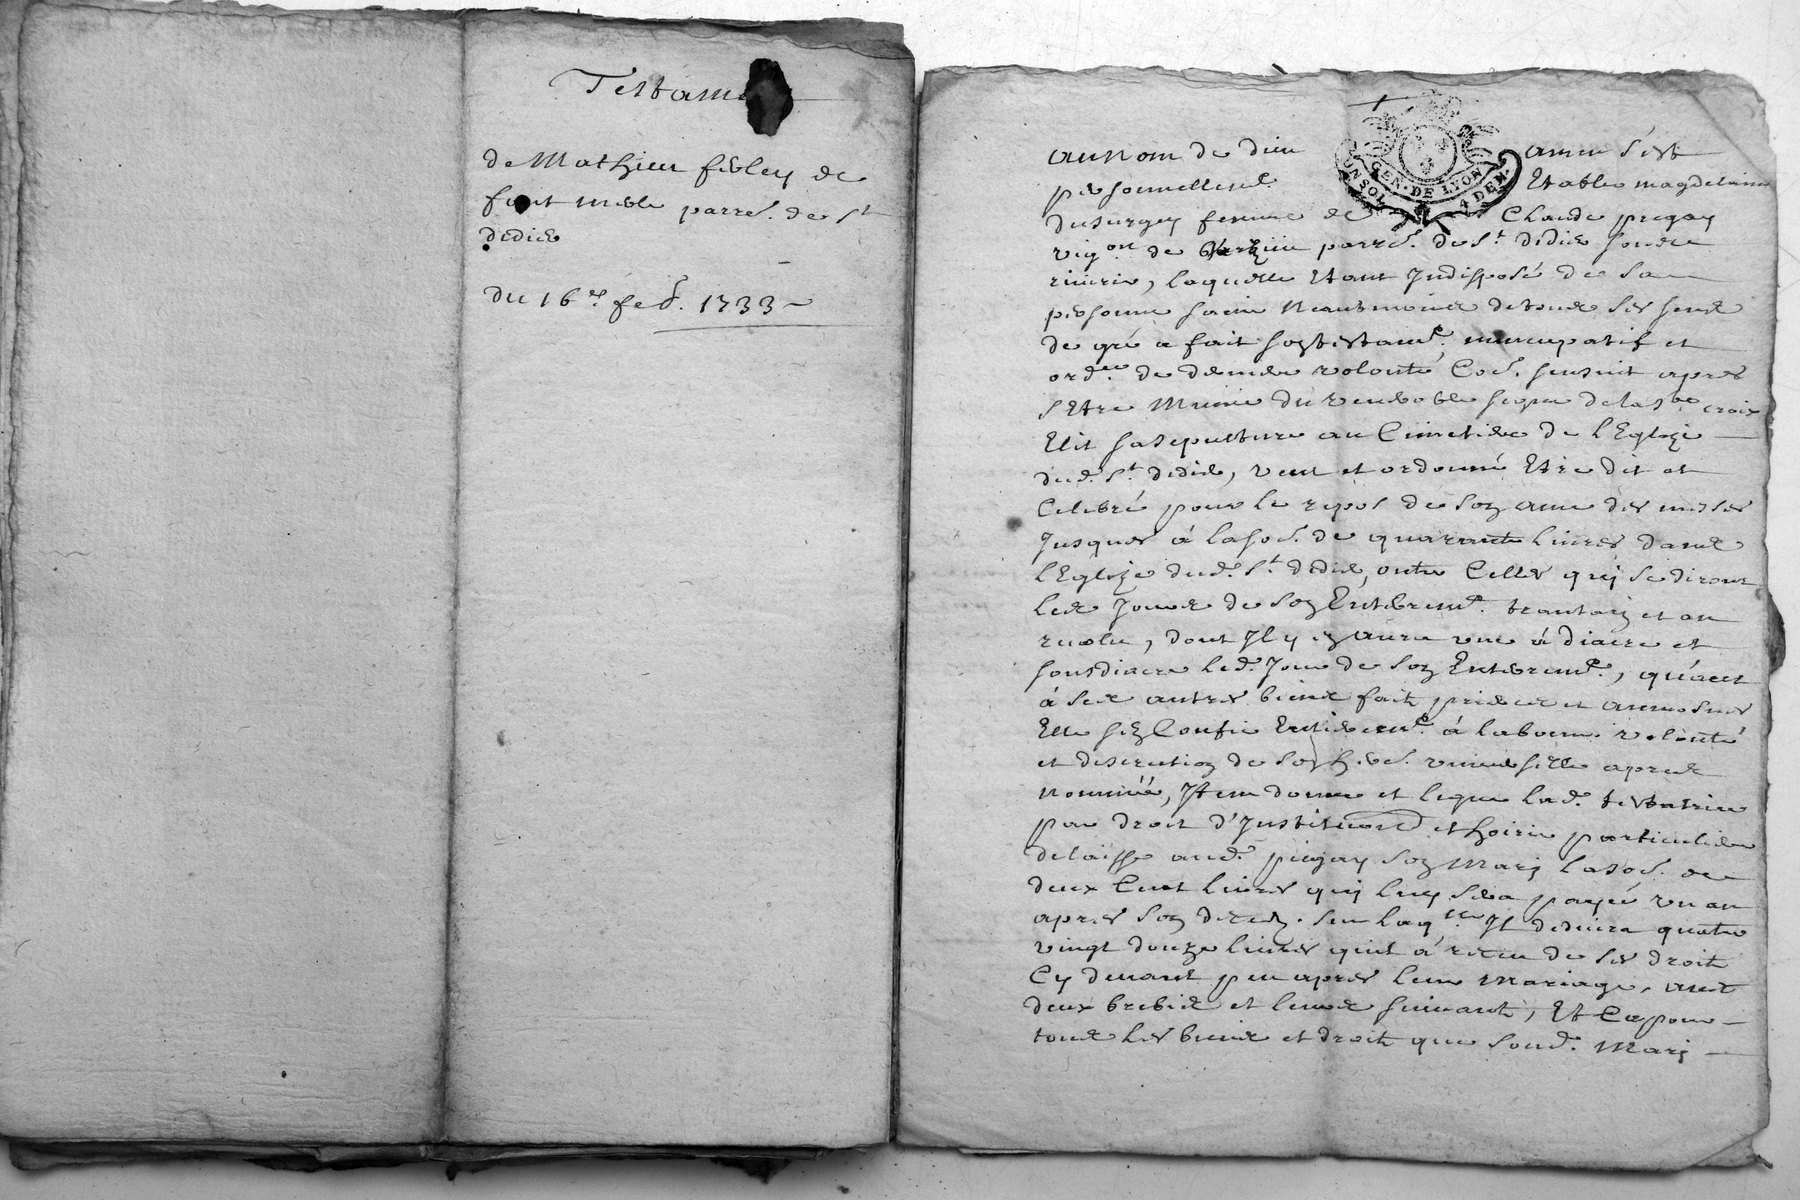 Testam
de Mathieu feoley de
font merle parre. de st
didier
du 16e. feb. 1733
GEN. DE LYON
4 DEN.
au nom de dieu amen s'est
personnellemt. Etablie magdelaine
dusurgey femme de Claude pugay
vigon de parre. de St. didier soubz
riverie, laquelle Etant Indisposée de sa
personne saine neantmoins de tous ses sens
de gré a fait son testamt. nuncupatif et
ordce. de derniere volonté Coe. sensuit apres
s'Etre Munie du venerable signe de la Ste croix
Elit sa sepulture au Cimetiere de l'Eglize
dud. St. didier, veut et ordonne Etre dit et
Celebré pour le repos de son ame des messes
Jusques à la soe. de quarante livres dans
l'Eglize dud. St. didier, outre Celles quy se diront
les Jours de son Enterremt. trantain et an
revolu, dont Il y en aura une à diacre et
sousdiacre led. Jour de son Enterremt., quant
à ses autres biens fait prieres et aumosnes
Elle s'en Confie Entieremt. à la bonne volonté
et discretion de son here. universelle apres
nommée, Item donne et legue lad. testatrice
par droit d'Institution et hoirie particuliere
delaisse aud. pugay son Mary la soe. de
deux Cent livres quy luy sera payé un an
apres son decez. sur laqlle Il deduira quatre
vingt douze livres qu'il a reçu de ses droits
Cy devant peu apres leur mariage, avec
deux brebis et leurs suivants, Et Ce pour
tous les biens et droits que sond. Mary